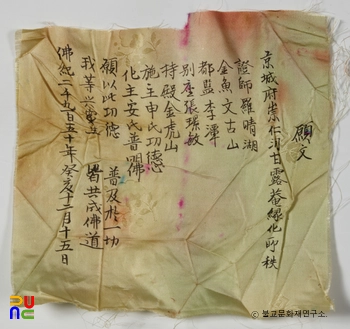 願文
京城府崇仁洞甘露菴緣化所秩
證師羅晴湖
金魚文古山
都監李渾
別座張環敏
持殿金虎山
施主申氏功德
化主安氏普明佛
願以此功德 普及於一切
我等與眾生 皆共成佛道
佛紀二千九百五十年癸亥十二月十五日
ⓒ 불교문화재연구소.